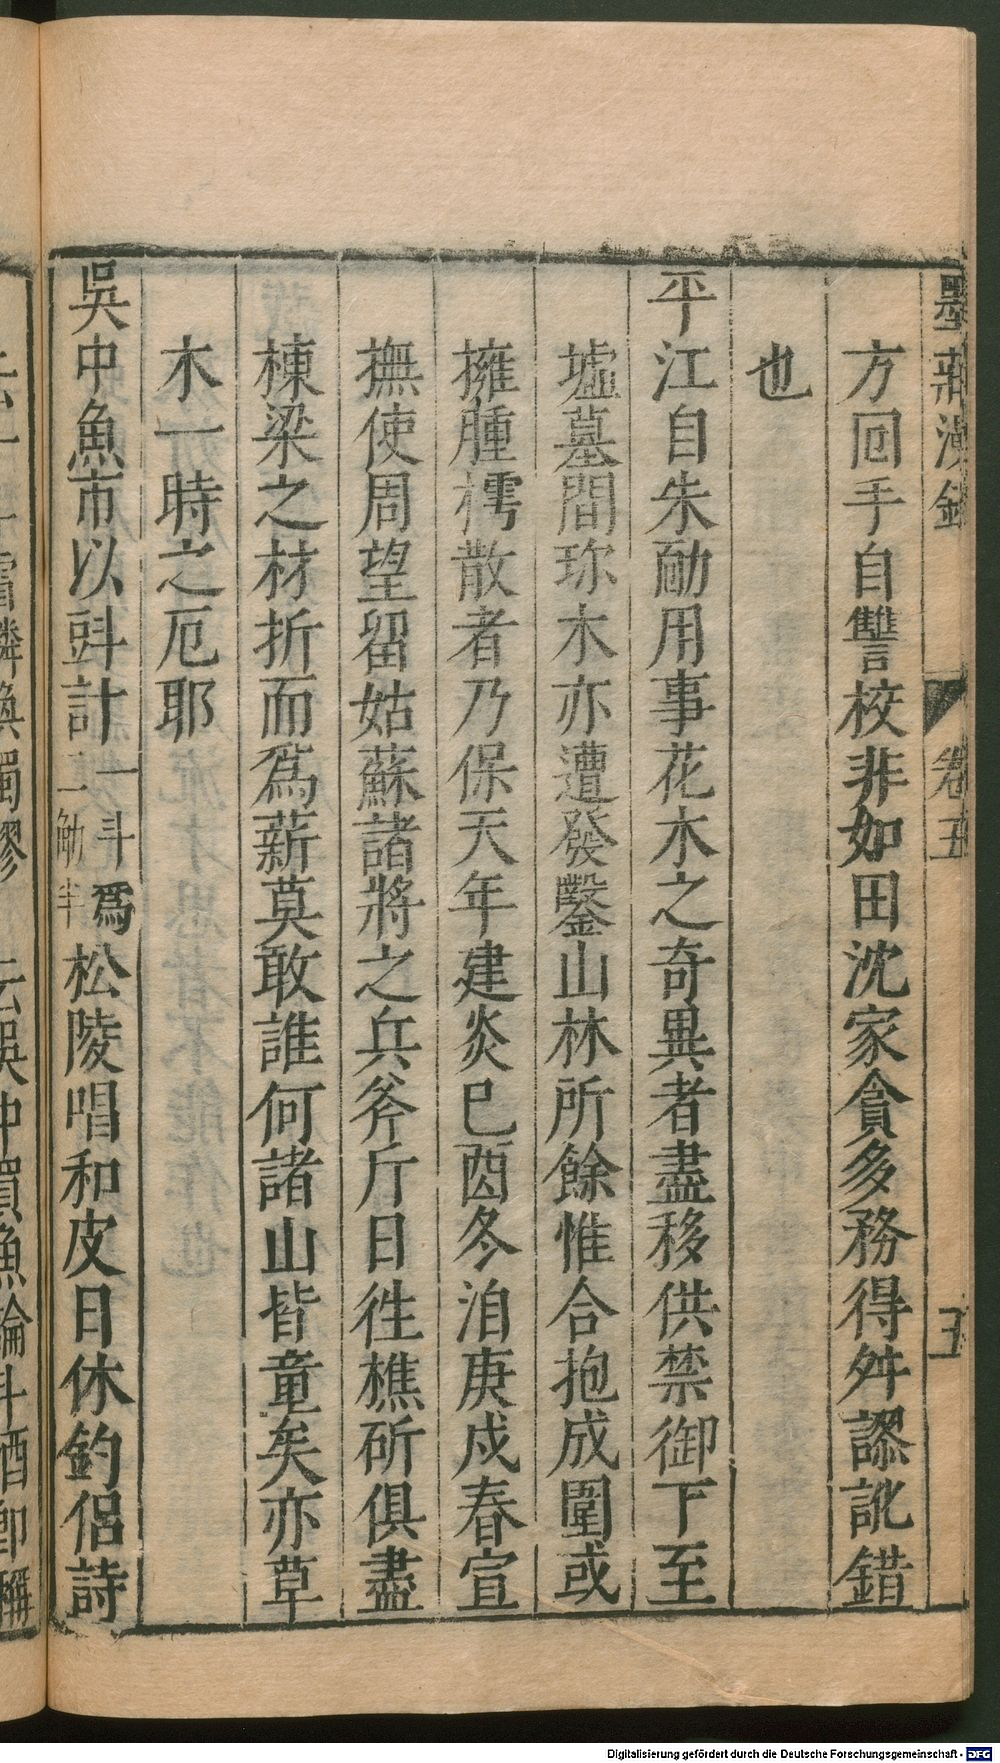 墨莊漫錄 卷五 五
方回手自讐校非如田沈家貪多務得舛謬訛錯
也
平江自朱勔用事花木之奇異者盡移供禁御下至
墟墓間珎木亦遭發鑿山林所餘惟合抱成圍或
擁腫樗散者乃保天年建炎巳酉冬洎庚戍春宣
撫使周望留姑蘇諸將之兵斧斤日徃樵斫俱盡
棟梁之材折而爲薪莫敢誰何諸山皆童矣亦草
木一時之厄耶
吳中魚市以㪷計一斗爲二觔半松陵唱和皮日休釣侣詩
Digitalisierung gefördert durch die Deutsche Forschungsgemeinschaft - DFG